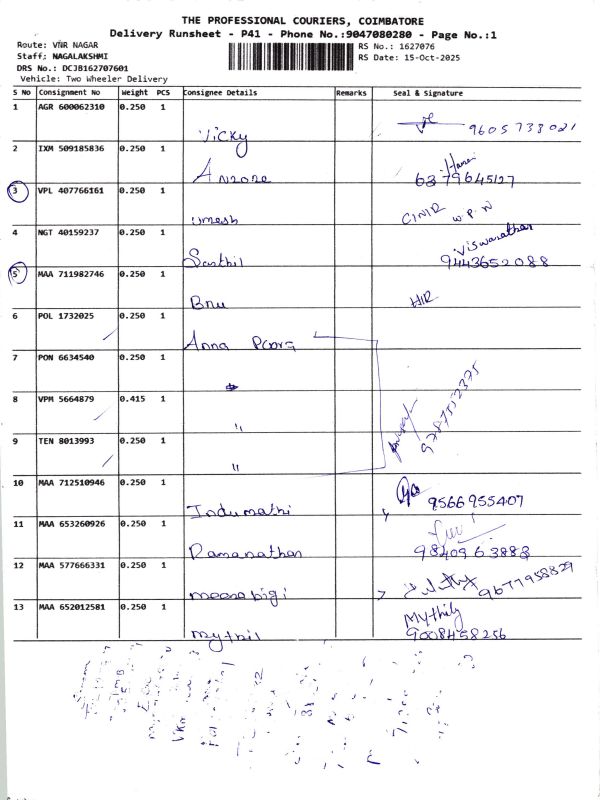 THE PROFESSIONAL COURIERS, COIMBATORE
Delivery Runsheet - P41 - Phone No.:9047080280 - Page No.:1
Route: VNR NAGAR
RS No.: 1627076
Staff: NAGALAKSHMI
RS Date: 15-Oct-2025
DRS No.: DCJB162707601
Vehicle: Two Wheeler Delivery
S No Consignment No Weight PCS Consignee Details Remarks Seal & Signature
1 AGR 600062310 0.250 1 Vicky 9605733021
2 IXM 509185836 0.250 1 6379645127
3 VPL 407766161 0.250 1 umesh
4 NGT 40159237 0.250 1 Senthil Viswanathan 9443652088
5 MAA 711982746 0.250 1 Bnu
6 POL 1732025 0.250 1 Anna
7 PON 6634540 0.250 1
8 VPM 5664879 0.415 1 "
9 TEN 8013993 0.250 1 "
10 MAA 712510946 0.250 1 Indumathi 9566955407
11 MAA 653260926 0.250 1 Ramanathan 9840963888
12 MAA 577666331 0.250 1 9677958829
13 MAA 652012581 0.250 1 Mythil Mythily 9008458256